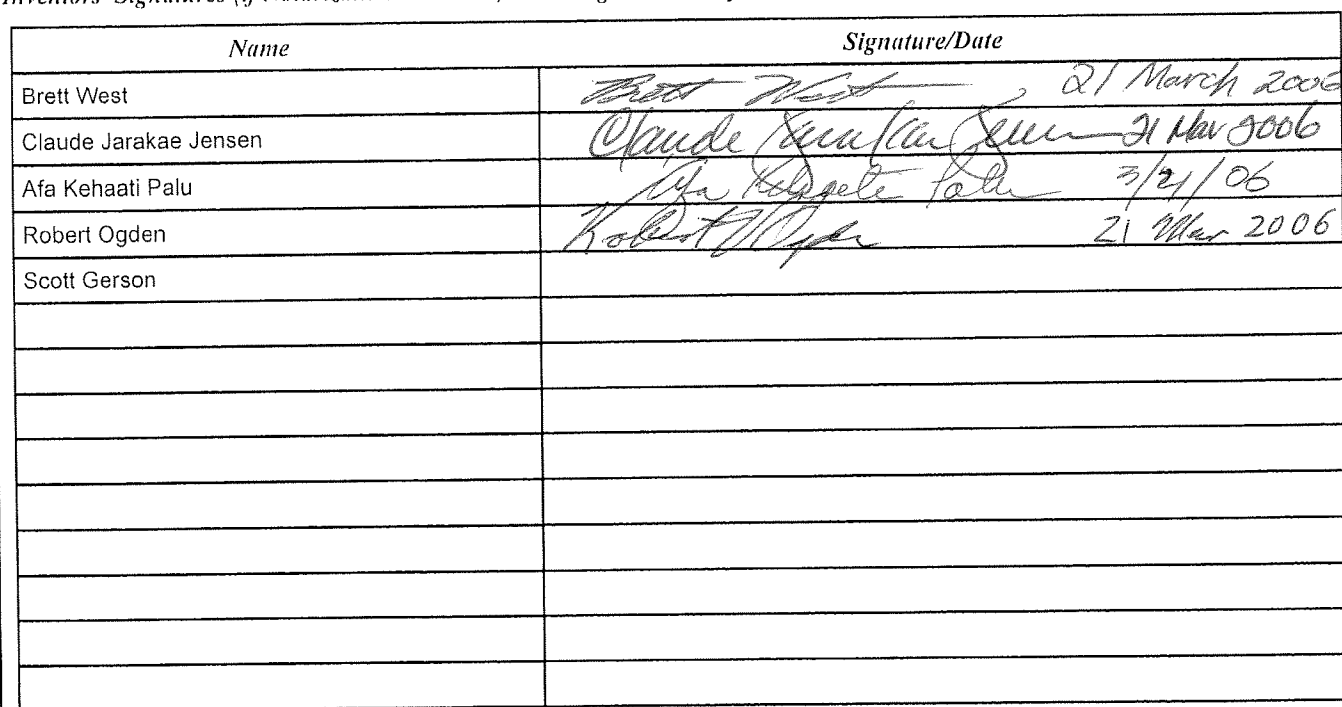 Inventors' Signatures (if
Name Signature/Date
Brett West Brett West, 21 March 2006
Claude Jarakae Jensen Claude Jarakae Jensen 21 Mar 2006
Afa Kehaati Palu Afa Palu 3/21/06
Robert Ogden Robert Ogden 21 Mar 2006
Scott Gerson